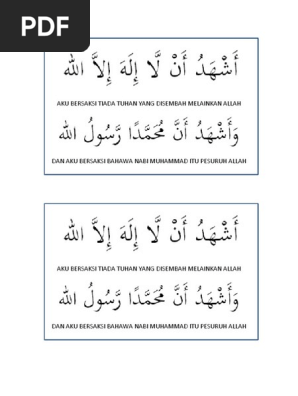 PDF
أَشْهَدُ أَنْ لَّا إِلَهَ إِلاَّ الله
AKU BERSAKSI TIADA TUHAN YANG DISEMBAH MELAINKAN ALLAH
وَأَشْهَدُ أَنَّ مُحَمَّدًا رَّسُولُ الله
DAN AKU BERSAKSI BAHAWA NABI MUHAMMAD ITU PESURUH ALLAH
أَشْهَدُ أَنْ لَّا إِلَهَ إِلاَّ الله
AKU BERSAKSI TIADA TUHAN YANG DISEMBAH MELAINKAN ALLAH
وَأَشْهَدُ أَنَّ مُحَمَّدًا رَّسُولُ الله
DAN AKU BERSAKSI BAHAWA NABI MUHAMMAD ITU PESURUH ALLAH